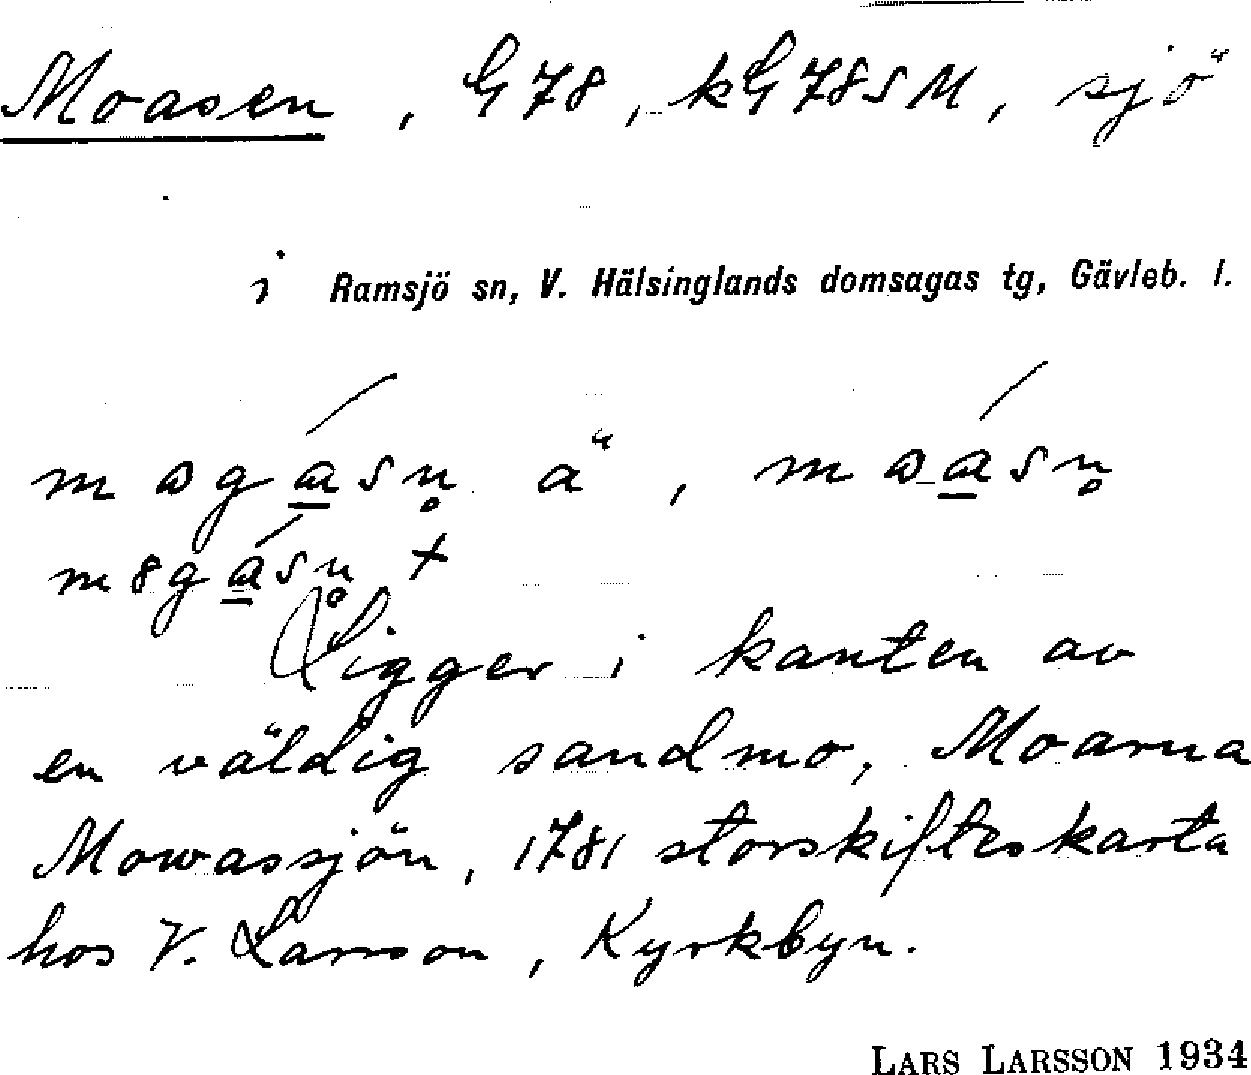 Moasen, G78, kG78SM, sjö
i Ramsjö sn, V. Hälsinglands domsagas tg, Gävleb. l.
Ligger i kanten av
en väldig sandmo, Moarna
Mowassjön, 1781 storskifteskarta
hos V. Larsson, Kyrkbyn.
LARS LARSSON 1934